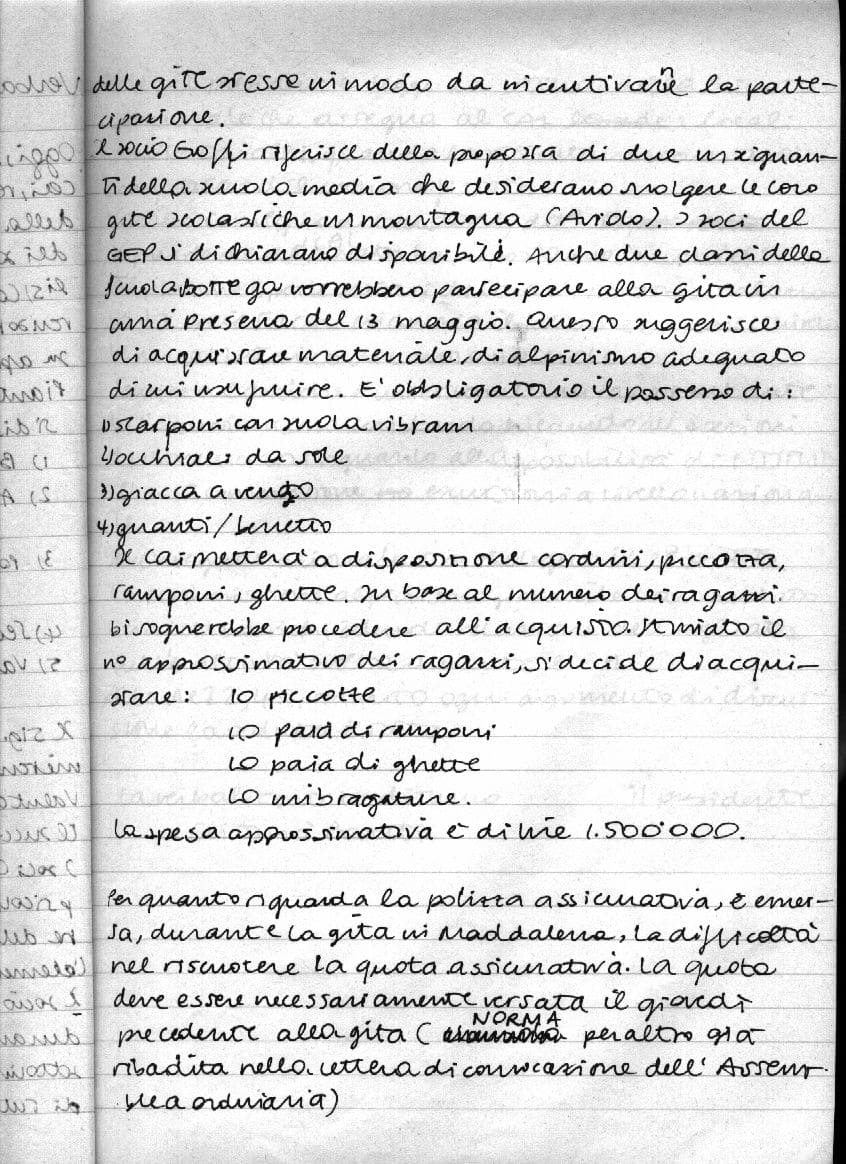 delle gite stesse in modo da incentivarne la parte-
cipazione.
Il socio Goffi riferisce della proposta di due insegnan-
ti della scuola media che desiderano svolgere le loro
gite scolastiche in montagna (Avido). I soci del
GEP si dichiarano disponibili. Anche due classi della
scuola bottega vorrebbero partecipare alla gita in
cima Presena del 13 maggio. Questo suggerisce
di acquistare materiale di alpinismo adeguato
di cui usufruire. E' obbligatorio il possesso di:
1) scarponi con suola vibram
2) occhiali da sole
3) giacca a vento
4) guanti/berretto
Il cai metterà a disposizione cordini, piccozza,
ramponi, ghette. In base al numero dei ragazzi
bisognerebbe procedere all'acquisto. Stimato il
n° approssimativo dei ragazzi, si decide di acqui-
stare: 10 piccozze
10 paia di ramponi
10 paia di ghette
10 imbragature.
La spesa approssimativa è di lire 1.500.000.
Per quanto riguarda la polizza assicurativa, è emer-
sa, durante la gita in Maddalena, la difficoltà
nel riscuotere la quota assicurativa. La quota
deve essere necessariamente versata il giovedì
precedente alla gita ( NORMA peraltro già
ribadita nella lettera di convocazione dell'Assem-
blea ordinaria)